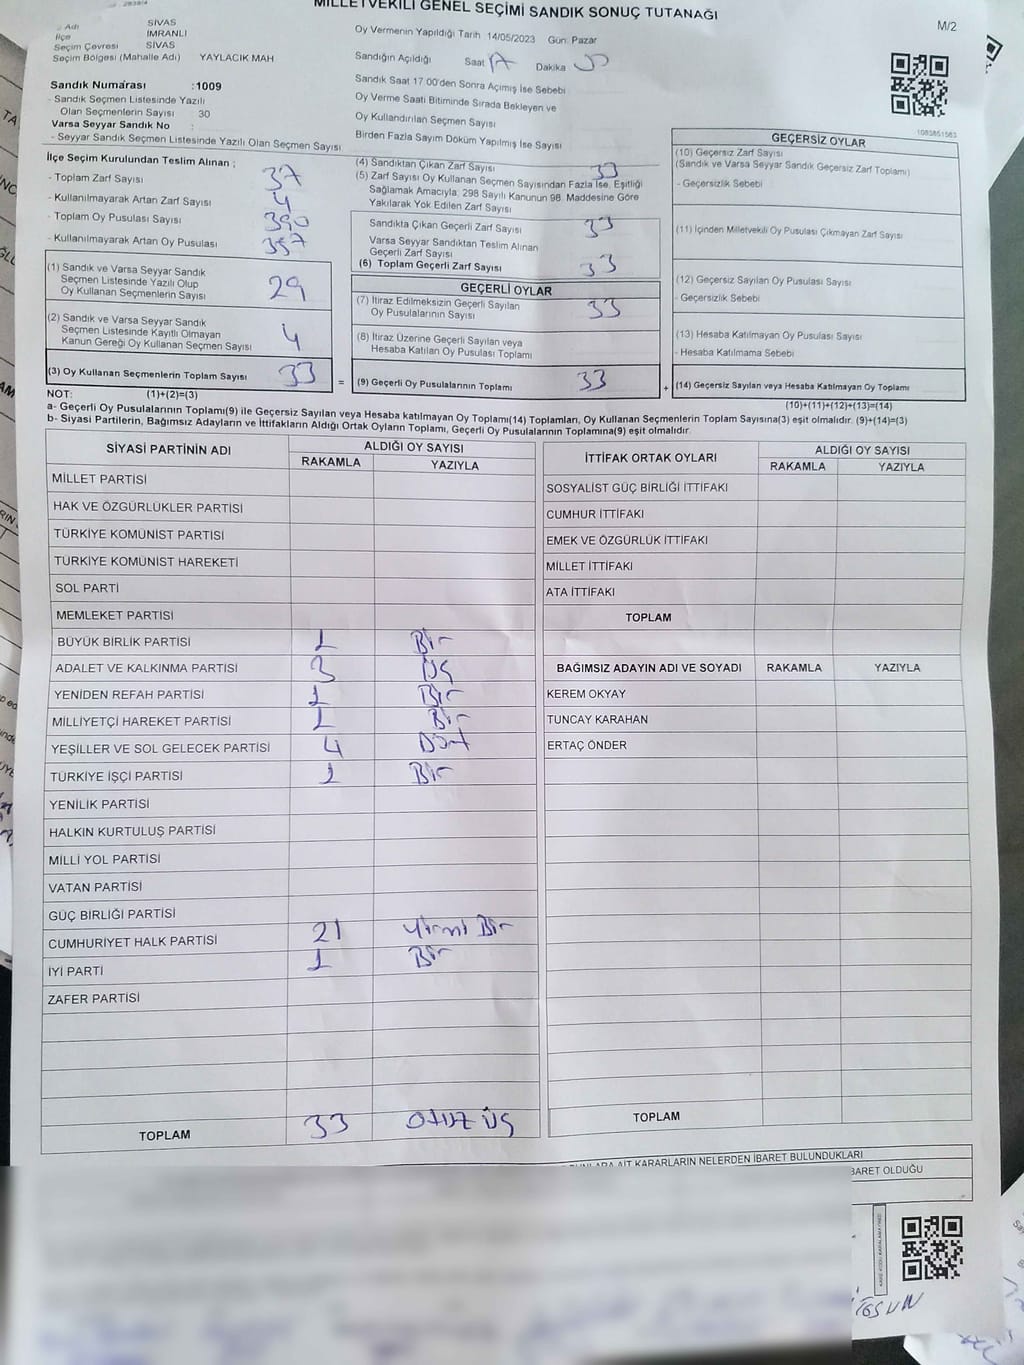 MİLLETVEKİLİ GENEL SEÇİMİ SANDIK SONUÇ TUTANAĞI
M/2
Adı SİVAS
İlçe İMRANLI
Seçim Çevresi SİVAS
Seçim Bölgesi (Mahalle Adı) YAYLACIK MAH
Oy Vermenin Yapıldığı Tarih 14/05/2023 Gün: Pazar
Sandığın Açıldığı Saat 17 Dakika
Sandık Saat 17:00'den Sonra Açımış İse Sebebi
Oy Verme Saati Bitiminde Sırada Bekleyen ve
Oy Kullandırılan Seçmen Sayısı
Birden Fazla Sayım Döküm Yapılmış İse Sayısı
Sandık Numarası :1009
- Sandık Seçmen Listesinde Yazılı
Olan Seçmenlerin Sayısı 30
Varsa Seyyar Sandık No :
- Seyyar Sandık Seçmen Listesinde Yazılı Olan Seçmen Sayısı
1083851563
İlçe Seçim Kurulundan Teslim Alınan ;
- Toplam Zarf Sayısı 37
- Kullanılmayarak Artan Zarf Sayısı 4
- Toplam Oy Pusulası Sayısı 390
- Kullanılmayarak Artan Oy Pusulası 357
(1) Sandık ve Varsa Seyyar Sandık
Seçmen Listesinde Yazılı Olup
Oy Kullanan Seçmenlerin Sayısı 29
(2) Sandık ve Varsa Seyyar Sandık
Seçmen Listesinde Kayıtlı Olmayan
Kanun Gereği Oy Kullanan Seçmen Sayısı 4
(3) Oy Kullanan Seçmenlerin Toplam Sayısı 33
(4) Sandıktan Çıkan Zarf Sayısı 33
(5) Zarf Sayısı Oy Kullanan Seçmen Sayısından Fazla İse, Eşitliği
Sağlamak Amacıyla: 298 Sayılı Kanunun 98. Maddesine Göre
Yakılarak Yok Edilen Zarf Sayısı
Sandıkta Çıkan Geçerli Zarf Sayısı 33
Varsa Seyyar Sandıktan Teslim Alınan
Geçerli Zarf Sayısı
(6) Toplam Geçerli Zarf Sayısı 33
GEÇERLİ OYLAR
(7) İtiraz Edilmeksizin Geçerli Sayılan
Oy Pusulalarının Sayısı 33
(8) İtiraz Üzerine Geçerli Sayılan veya
Hesaba Katılan Oy Pusulası Toplamı
= (9) Geçerli Oy Pusulalarının Toplamı 33
GEÇERSİZ OYLAR
(10) Geçersiz Zarf Sayısı
(Sandık ve Varsa Seyyar Sandık Geçersiz Zarf Toplamı)
- Geçersizlik Sebebi
(11) İçinden Milletvekili Oy Pusulası Çıkmayan Zarf Sayısı
(12) Geçersiz Sayılan Oy Pusulası Sayısı
- Geçersizlik Sebebi
(13) Hesaba Katılmayan Oy Pusulası Sayısı
- Hesaba Katılmama Sebebi
+ (14) Geçersiz Sayılan veya Hesaba Katılmayan Oy Toplamı
NOT: (1)+(2)=(3)
(10)+(11)+(12)+(13)=(14)
a- Geçerli Oy Pusulalarının Toplamı(9) ile Geçersiz Sayılan veya Hesaba katılmayan Oy Toplamı(14) Toplamları, Oy Kullanan Seçmenlerin Toplam Sayısına(3) eşit olmalıdır. (9)+(14)=(3)
b- Siyasi Partilerin, Bağımsız Adayların ve İttifakların Aldığı Ortak Oyların Toplamı, Geçerli Oy Pusulalarının Toplamına(9) eşit olmalıdır.
SİYASİ PARTİNİN ADI ALDIĞI OY SAYISI
RAKAMLA YAZIYLA
MİLLET PARTİSİ
HAK VE ÖZGÜRLÜKLER PARTİSİ
TÜRKİYE KOMÜNİST PARTİSİ
TÜRKİYE KOMÜNİST HAREKETİ
SOL PARTİ
MEMLEKET PARTİSİ
BÜYÜK BİRLİK PARTİSİ 1 Bir
ADALET VE KALKINMA PARTİSİ 3 Üç
YENİDEN REFAH PARTİSİ 1 Bir
MİLLİYETÇİ HAREKET PARTİSİ 1 Bir
YEŞİLLER VE SOL GELECEK PARTİSİ 4 Dört
TÜRKİYE İŞÇİ PARTİSİ 1 Bir
YENİLİK PARTİSİ
HALKIN KURTULUŞ PARTİSİ
MİLLİ YOL PARTİSİ
VATAN PARTİSİ
GÜÇ BİRLİĞİ PARTİSİ
CUMHURİYET HALK PARTİSİ 21 Yirmi Bir
İYİ PARTİ 1 Bir
ZAFER PARTİSİ
TOPLAM 33 Otuz üç
İTTİFAK ORTAK OYLARI ALDIĞI OY SAYISI
RAKAMLA YAZIYLA
SOSYALİST GÜÇ BİRLİĞİ İTTİFAKI
CUMHUR İTTİFAKI
EMEK VE ÖZGÜRLÜK İTTİFAKI
MİLLET İTTİFAKI
ATA İTTİFAKI
TOPLAM
BAĞIMSIZ ADAYIN ADI VE SOYADI RAKAMLA YAZIYLA
KEREM OKYAY
TUNCAY KARAHAN
ERTAÇ ÖNDER
TOPLAM
AİT KARARLARIN NELERDEN İBARET BULUNDUKLARI
İBARET OLDUĞU